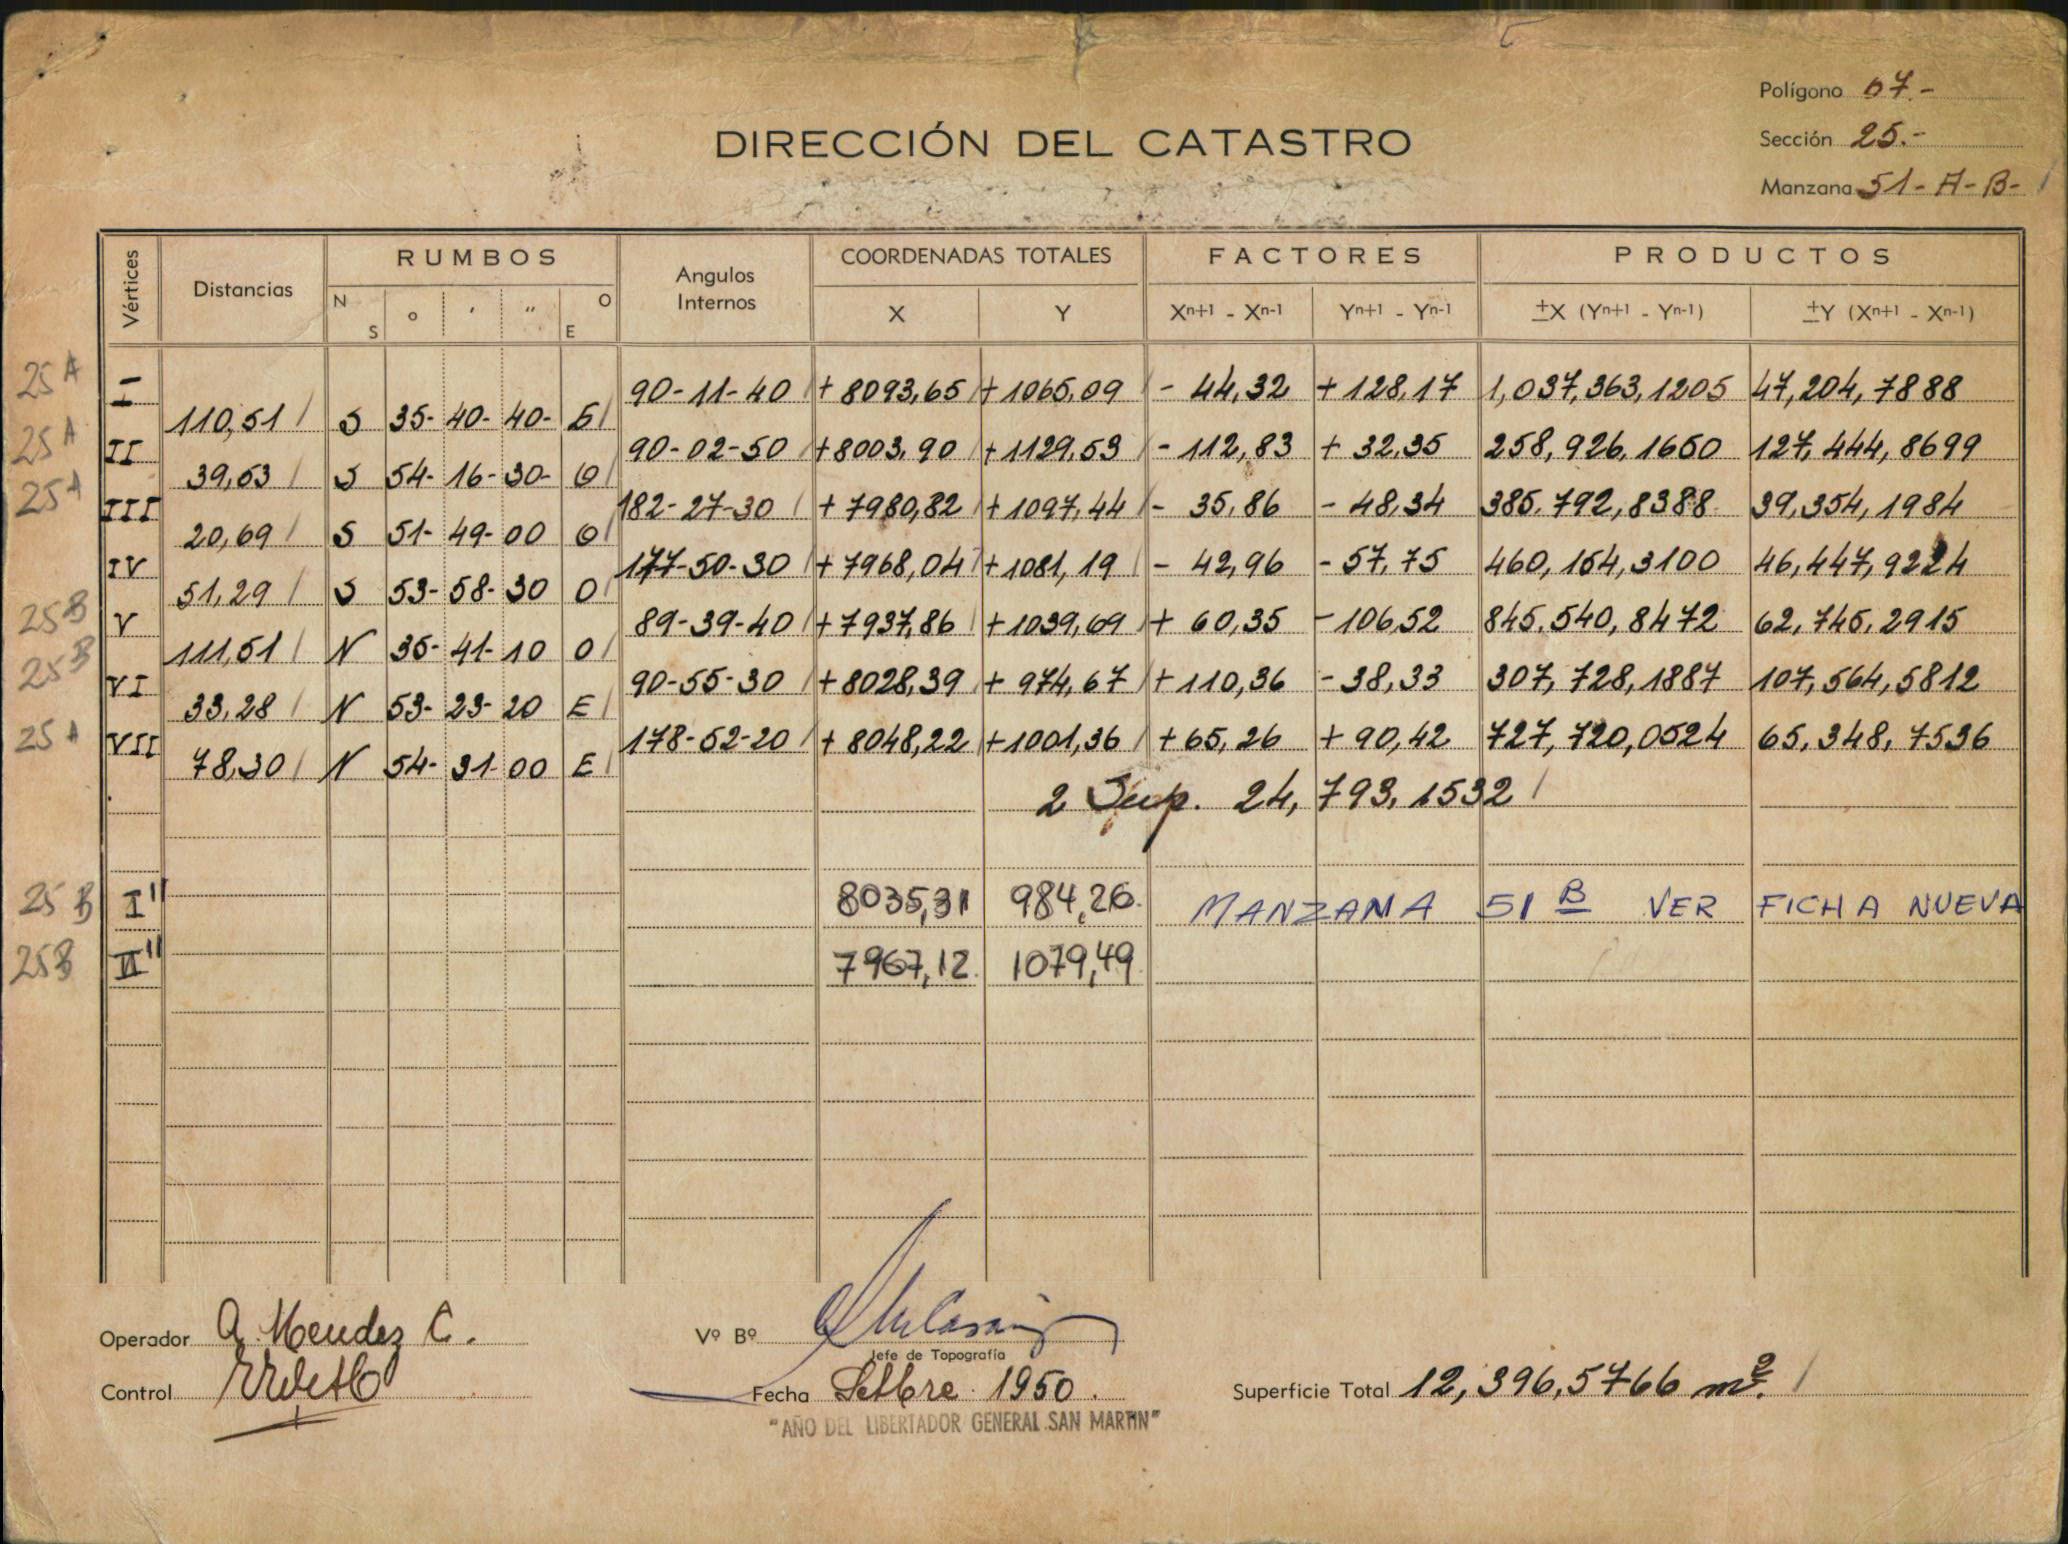 Polígono 07.-
DIRECCIÓN DEL CATASTRO
Sección 25.-
Manzana 51-A-B-
Vértices Distancias RUMBOS Angulos Internos COORDENADAS TOTALES FACTORES PRODUCTOS
N S o ' " O E X Y Xⁿ⁺¹ - Xⁿ⁻¹ Yⁿ⁺¹ - Yⁿ⁻¹ ±X (Yⁿ⁺¹ - Yⁿ⁻¹) ±Y (Xⁿ⁺¹ - Xⁿ⁻¹)
25 A I 90-11-40 +8093,65 +1065,09 - 44,32 +128,17 1,037,363,1205 47,204,7888
110,51 S 35- 40- 40- E
25 A II 90-02-50 +8003,90 +1129,53 - 112,83 + 32,35 258,926,1650 127,444,8699
39,53 S 54- 16- 30- O
25 A III 182-27-30 +7980,82 +1097,44 - 35,86 - 48,34 385,792,8388 39,354,1984
20,69 S 51- 49- 00 O
IV 177-50-30 +7968,04 +1081,19 - 42,96 - 57,75 460,154,3100 46,447,9224
51,29 S 53- 58- 30 O
25 B V 89-39-40 +7937,86 +1039,69 + 60,35 -106,52 845,540,8472 62,745,2915
111,51 N 35- 41- 10 O
25 B VI 90-55-30 +8028,39 + 974,67 +110,36 -38,33 307,728,1887 107,564,5812
33,28 N 53- 23- 20 E
25 A VII 178-52-20 +8048,22 +1001,36 +65,26 +90,42 727,720,0524 65,348,7536
78,30 N 54- 31- 00 E
2 Sup. 24,793,1532
25 B I'' 8035,31 984,26 MANZANA 51 B VER FICHA NUEVA
25B II'' 7967,12 1079,49
Operador A. Mendez C.
Vº Bº
Jefe de Topografía
Control
Fecha Setbre. 1950.
Superficie Total 12,396,5766 m².
"AÑO DEL LIBERTADOR GENERAL SAN MARTIN"